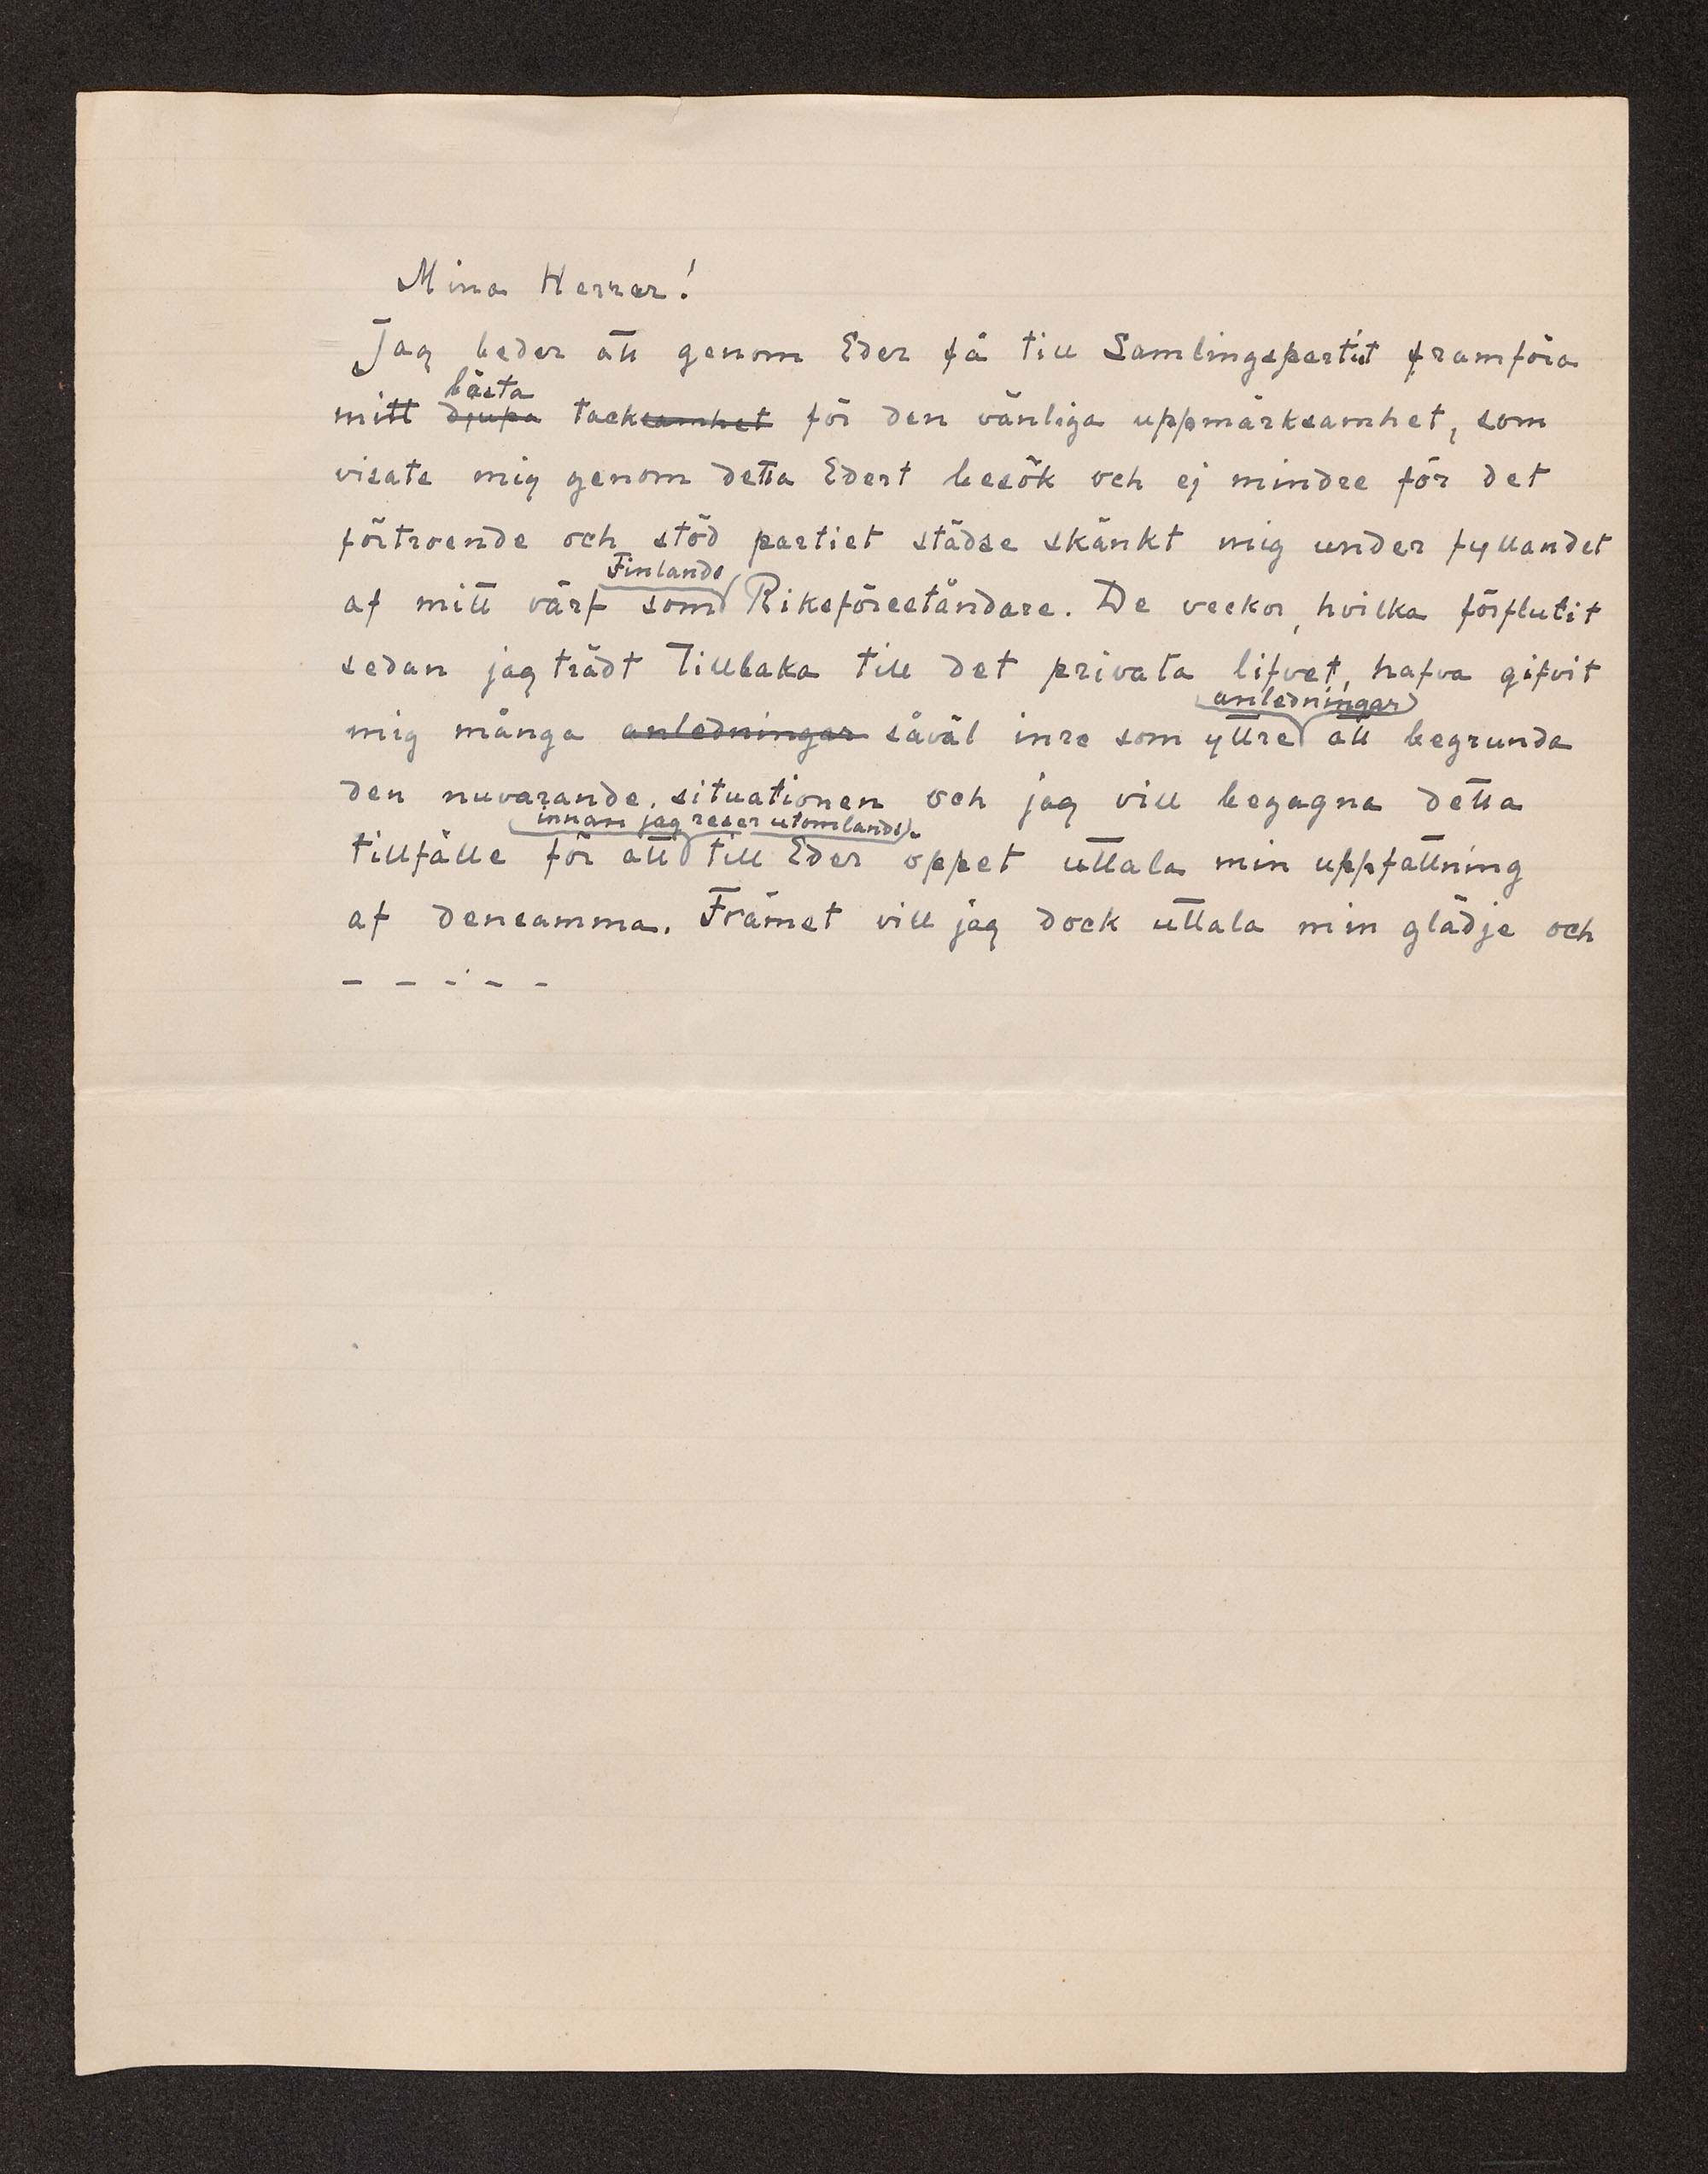 Mina Herrar!
Jag beder att genom Eder få till Samlingspartiet framföra
bästa
mitt djupa tacksamhet för den vänliga uppmärksamhet, som
visats mig genom detta Edert besök och ej mindre för det
förtroende och stöd partiet städse skänkt mig under fyllandet
Finlands
af mitt värf som Riksföreståndare. De veckor, hvilka förflutit
sedan jag trädt tillbaka till det privata lifvet, hafva gifvit
anledningar
mig många anledningar såväl inre som yttre att begrunda
den nuvarande situationen och jag vill begagna detta
innan jag reser utomlands
tillfälle för att till Eder öppet uttala min uppfattning
af densamma. Främst vill jag dock uttala min glädje och
- - - - -